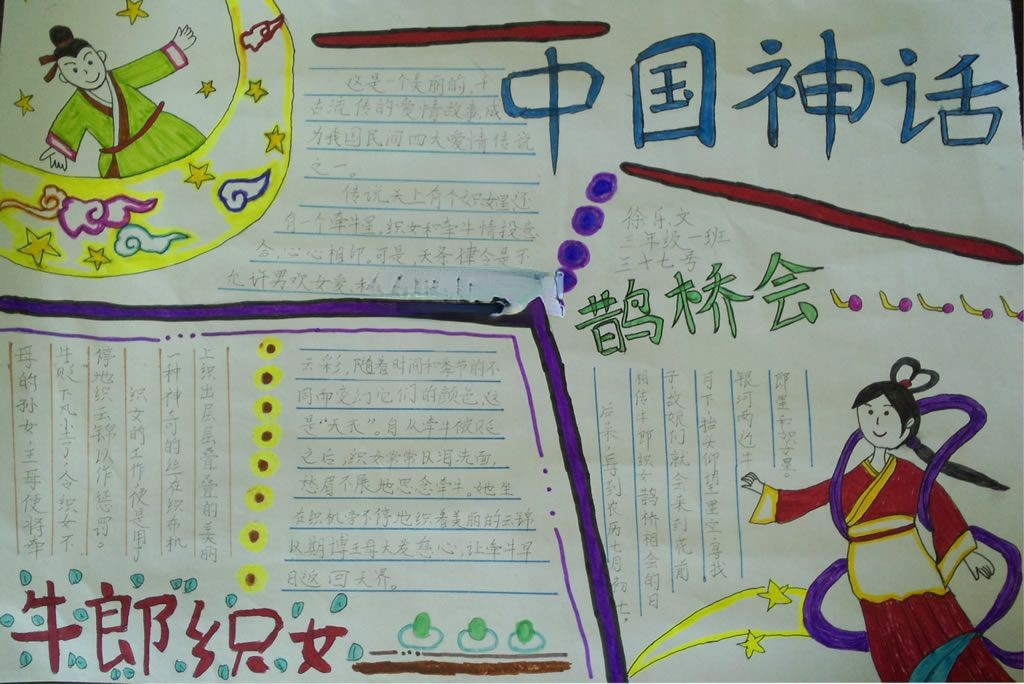 中国神话
这是一个美丽的,千
古流传的爱情故事,成
为我国民间四大爱情传说
之一。
传说天上有个织女星,还
有一个牵牛星。织女和牵牛情投意
合,心心相印。可是,天条律令是不
允许男欢女爱、
徐乐文
三年级一班
三十七号
鹊桥会
母的孙女,王母便将牵
牛贬下凡尘了,令织女不
停地织云锦以作惩罚。
织女的工作便是用了
一种神奇的丝在织布机
上织出层层叠叠的美丽
云彩,随着时间和季节的不
同而变幻它们的颜色,这
是“天衣”。自从牵牛被贬
之后,织女常常以泪洗面,
愁眉不展地思念牵牛。她坐
在织机旁不停地织着美丽的云锦
以期博王母大发慈心,让牵牛早
日返回天界。
牛郎织女
后来,每到农历七月初七,
相传牛郎织女鹊桥相会的日
子,姑娘们就会来到花前
月下,抬头仰望星空,寻找
银河两边牛
郎星和织女星。